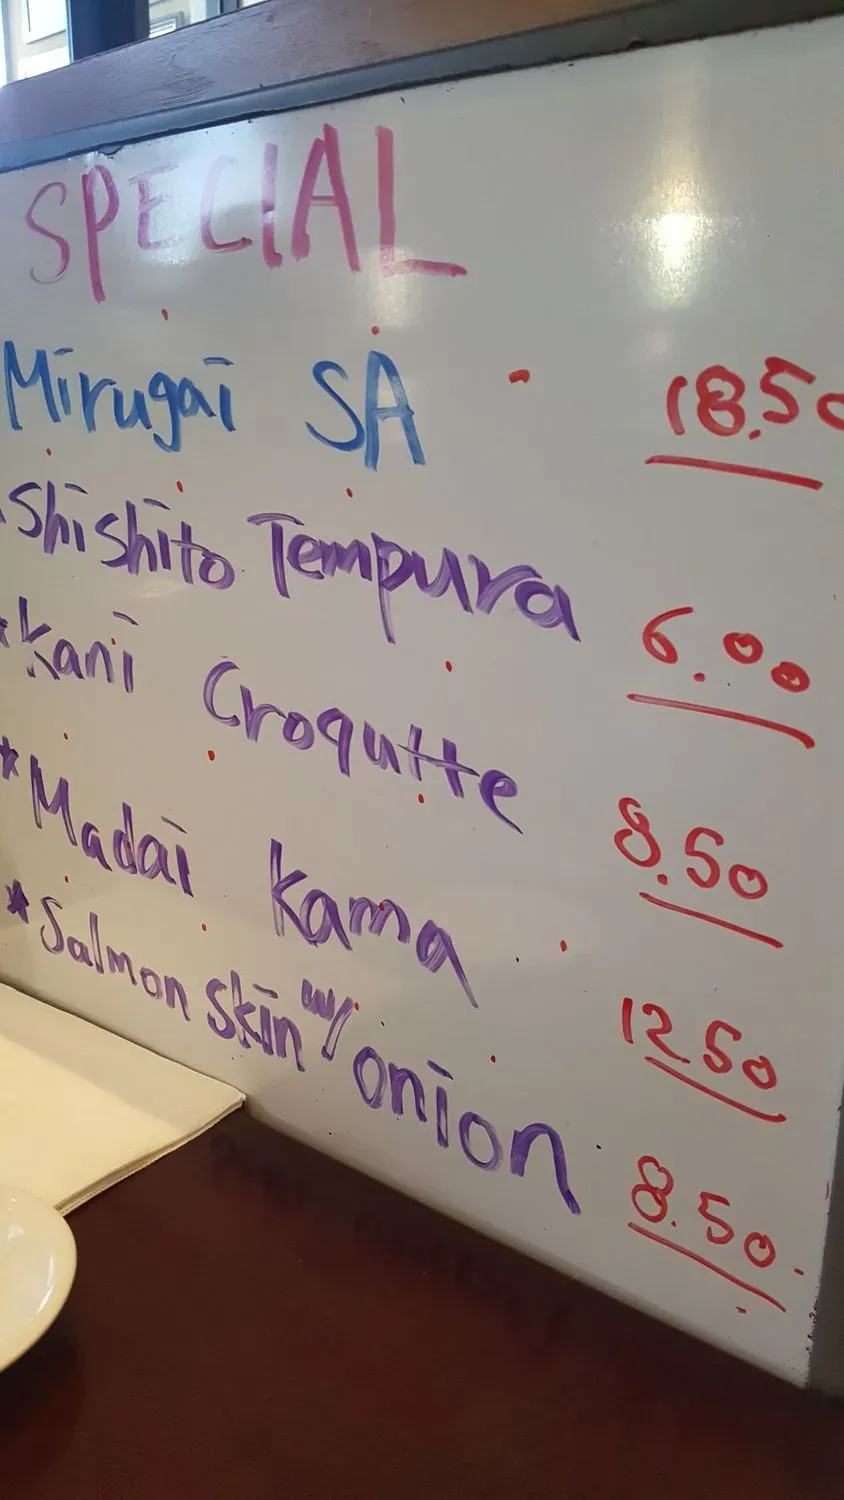 SPECIAL
Mirugai SA 18.50
Shishito Tempura 6.00
*Kani Croqutte 8.50
*Madai Kama 12.50
*Salmon Skin w/ onion 8.50